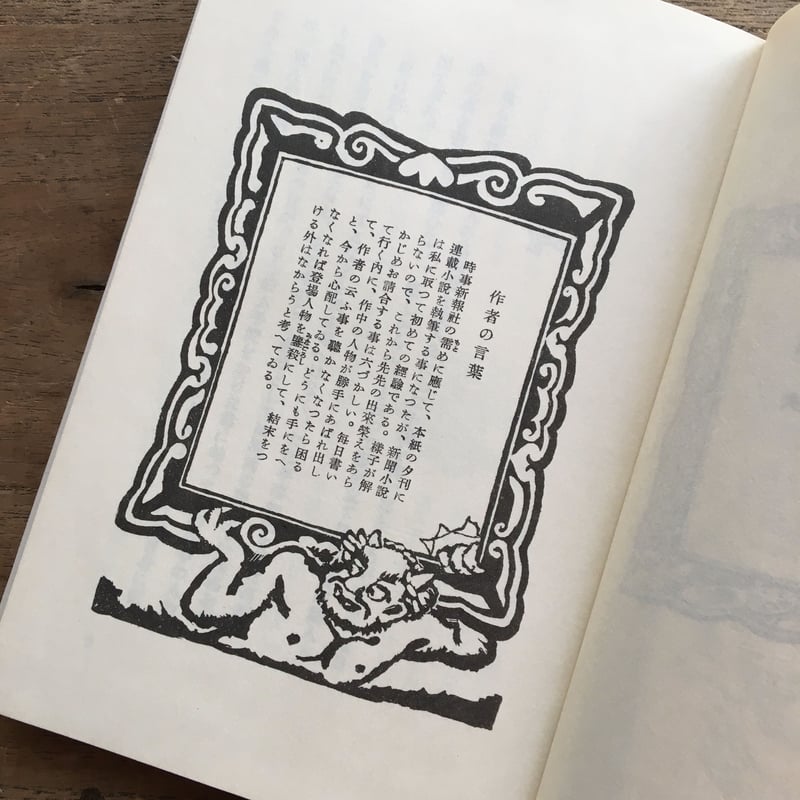 作者の言葉
時事新報社の需めに應じて、本紙の夕刊に
もと
連載小説を執筆する事になつたが、新聞小説
は私に取つて初めての經驗である。樣子が解
らないので、これから先先の出來榮えをあら
かじめお請合する事は六づかしい。毎日書い
て行く内に、作中の人物が勝手にあばれ出し
て、作者の云ふ事を聽かなくなつたら困る
と、今から心配してゐる。どうにも手にをへ
なくなれば登場人物を鏖殺にして、結末をつ
みなごろし
ける外はなからうと考へてゐる。